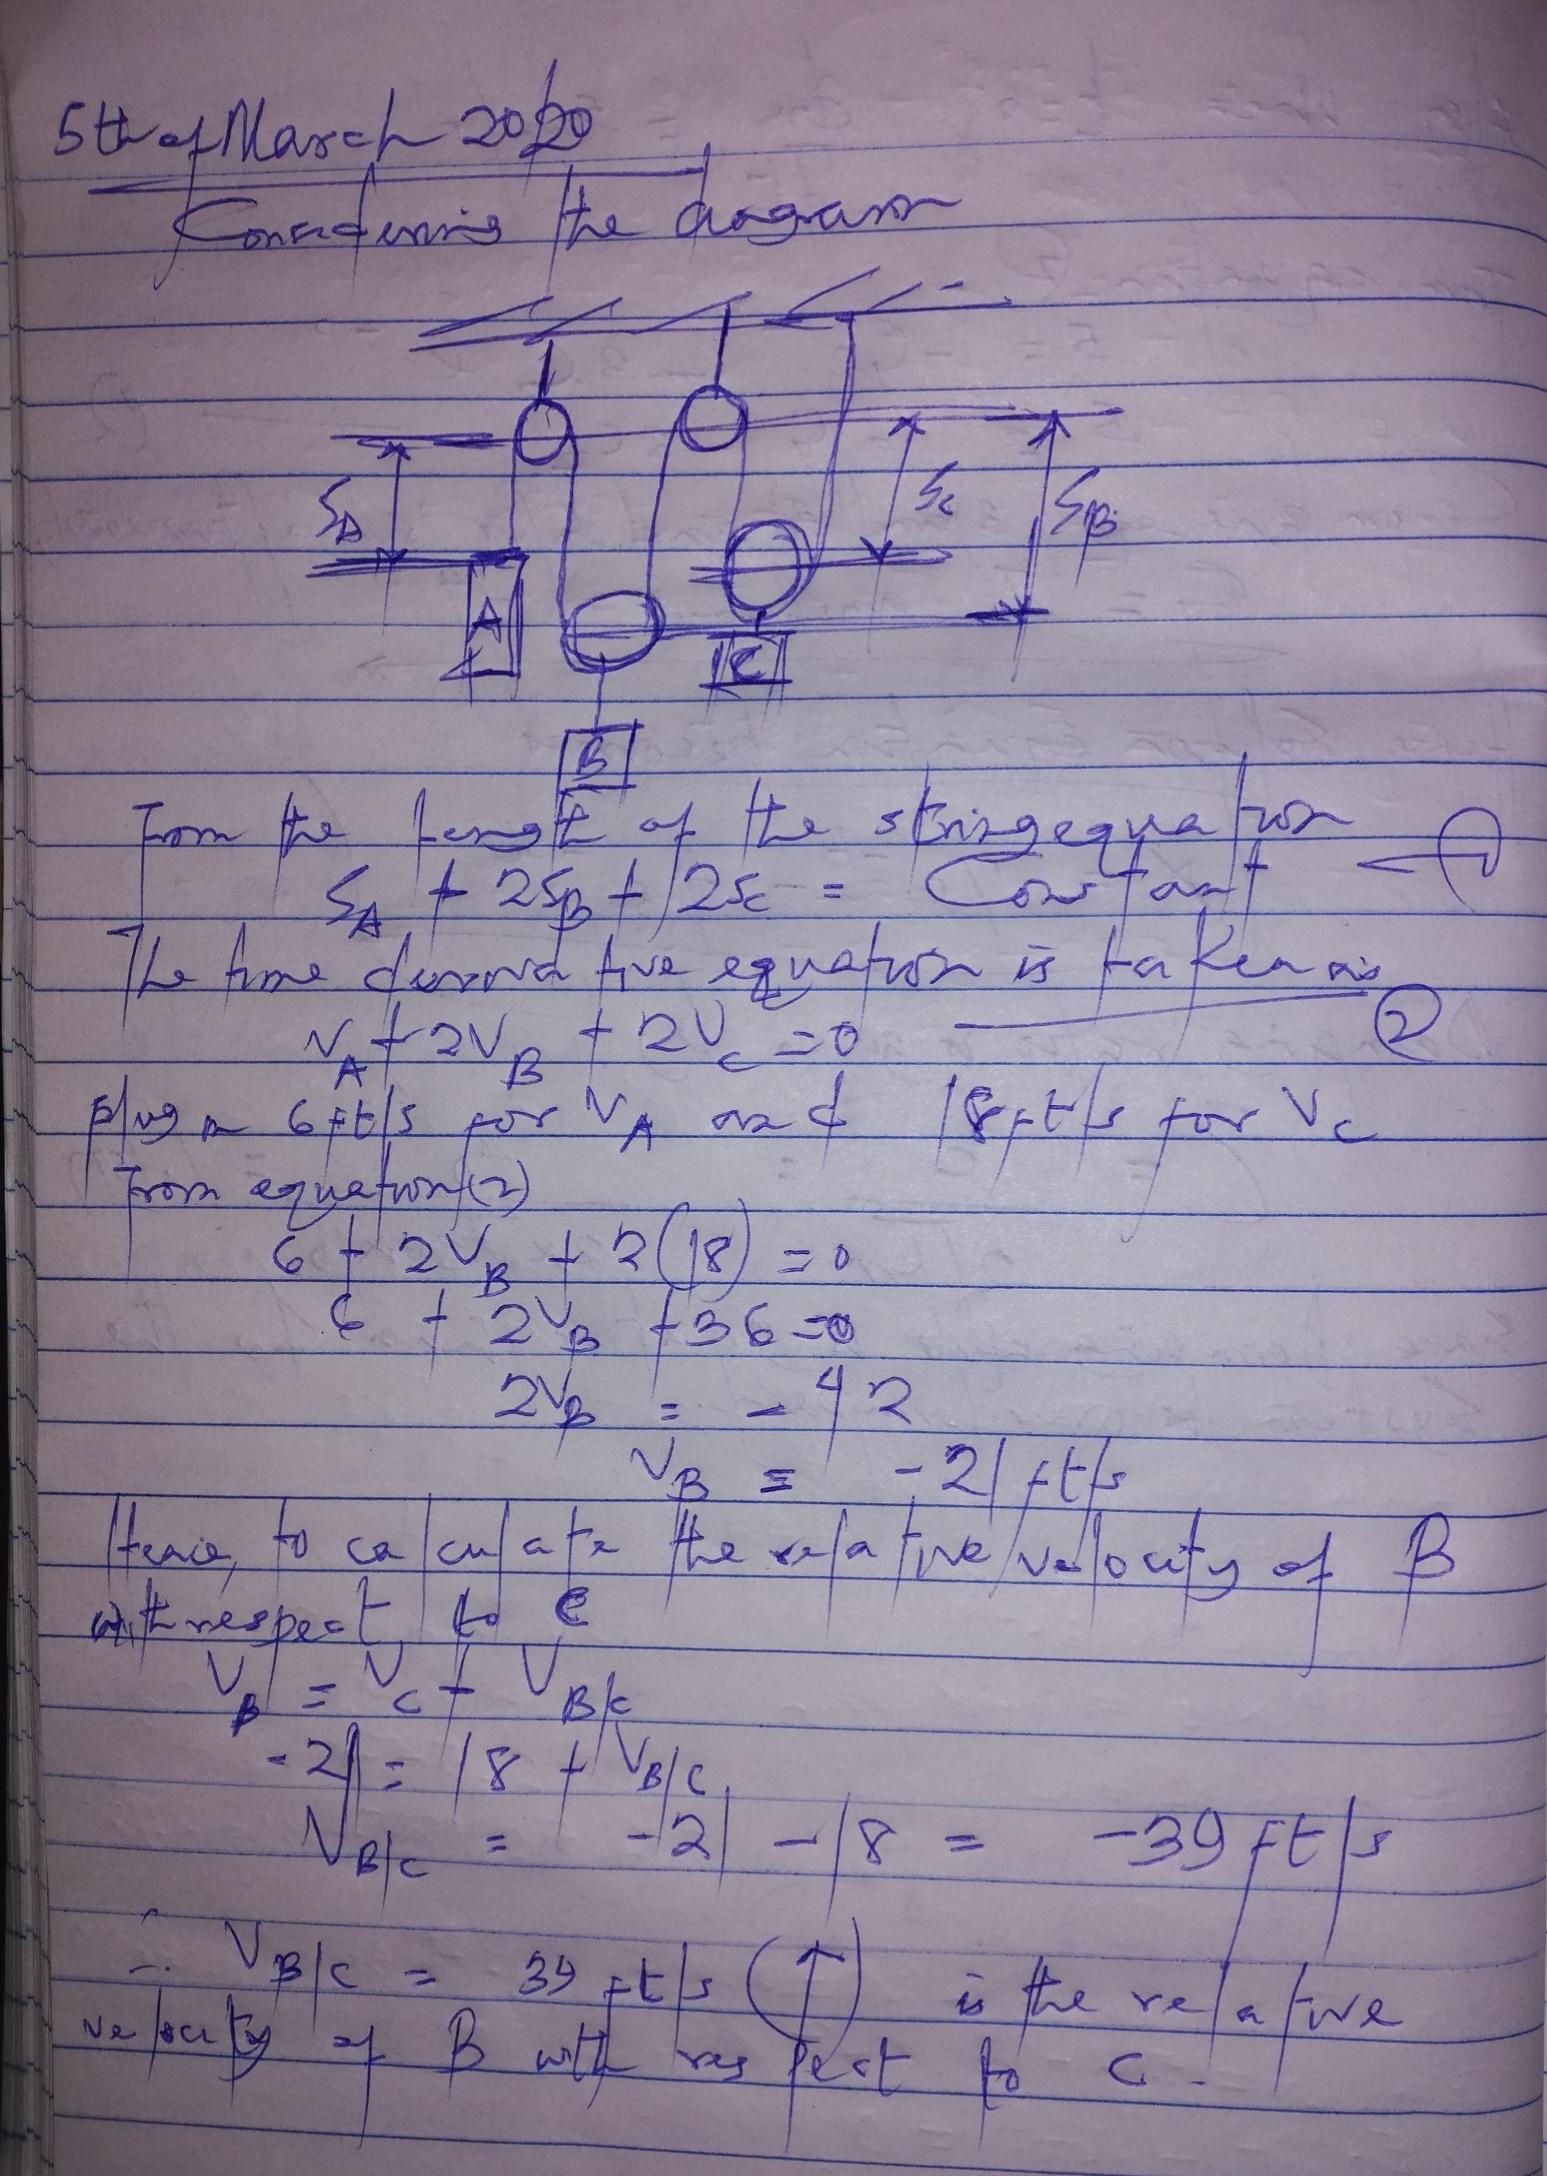 5th of March 2020
Considering the diagram
S_A
S_c
S_B
A
C
B
From the length of the string equation
S_A + 2S_B + 2S_c = Constant ①
The time derivative equation is taken as
V_A + 2V_B + 2V_c = 0 ②
plug in 6ft/s for V_A and 18ft/s for V_c
From equation (2)
6 + 2V_B + 2(18) = 0
6 + 2V_B + 36 = 0
2V_B = -42
V_B = -21 ft/s
Hence, to calculate the relative velocity of B
with respect to C
V_B = V_C + V_B/C
-21 = 18 + V_B/C
V_B/C = -21 - 18 = -39 ft/s
∴ V_B/C = 39 ft/s (↑) is the relative
velocity of B with respect to C.